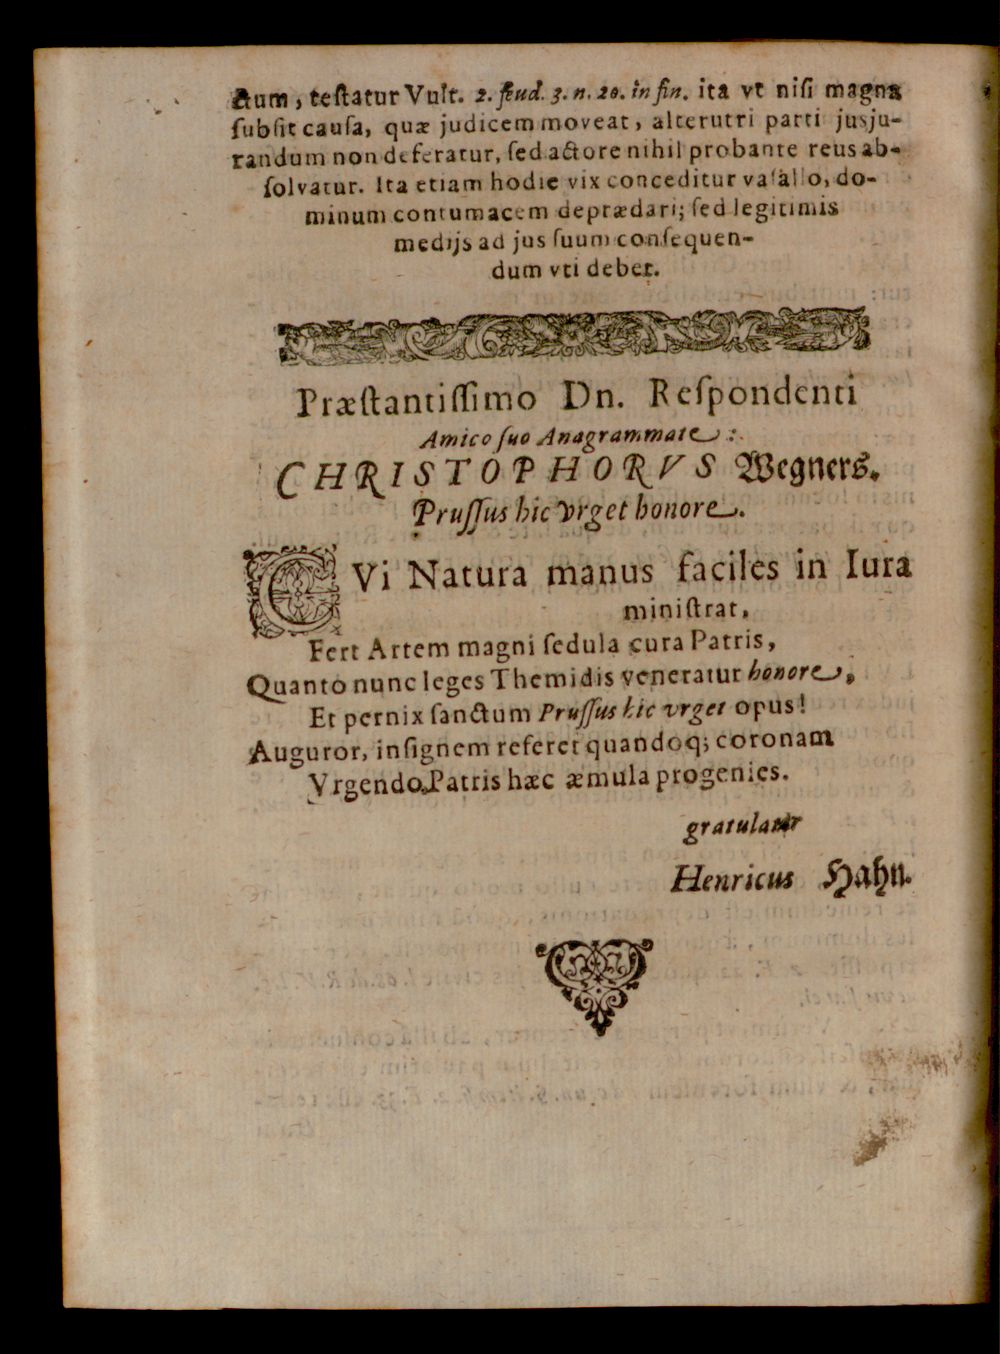 ctum, testatur Vult. 2. feud. 3. n. 20. in fin. ita vt nisi magna
ſubſit cauſa, quæ judicem moveat, alterutri parti jusju-
randum non deferatur, ſed actore nihil probante reus ab-
ſolvatur. Ita etiam hodie vix conceditur vaſallo, do-
minum contumacem deprædari; ſed legitimis
medijs ad jus ſuum conſequen-
dum vti debet.
Præſtantiſſimo Dn. Reſpondenti
Amico ſuo Anagrammate:
CHRISTOPHORVS Wegners.
Pruſſus hic vrget honore.
CVi Natura manus faciles in Iura
miniſtrat,
Fert Artem magni ſedula cura Patris,
Quanto nunc leges Themidis veneratur honore,
Et pernix ſanctum Pruſſus hic vrget opus!
Auguror, inſignem referet quandoq; coronam
Vrgendo Patris hæc æmula progenies.
gratulatur
Henricus Hahn.